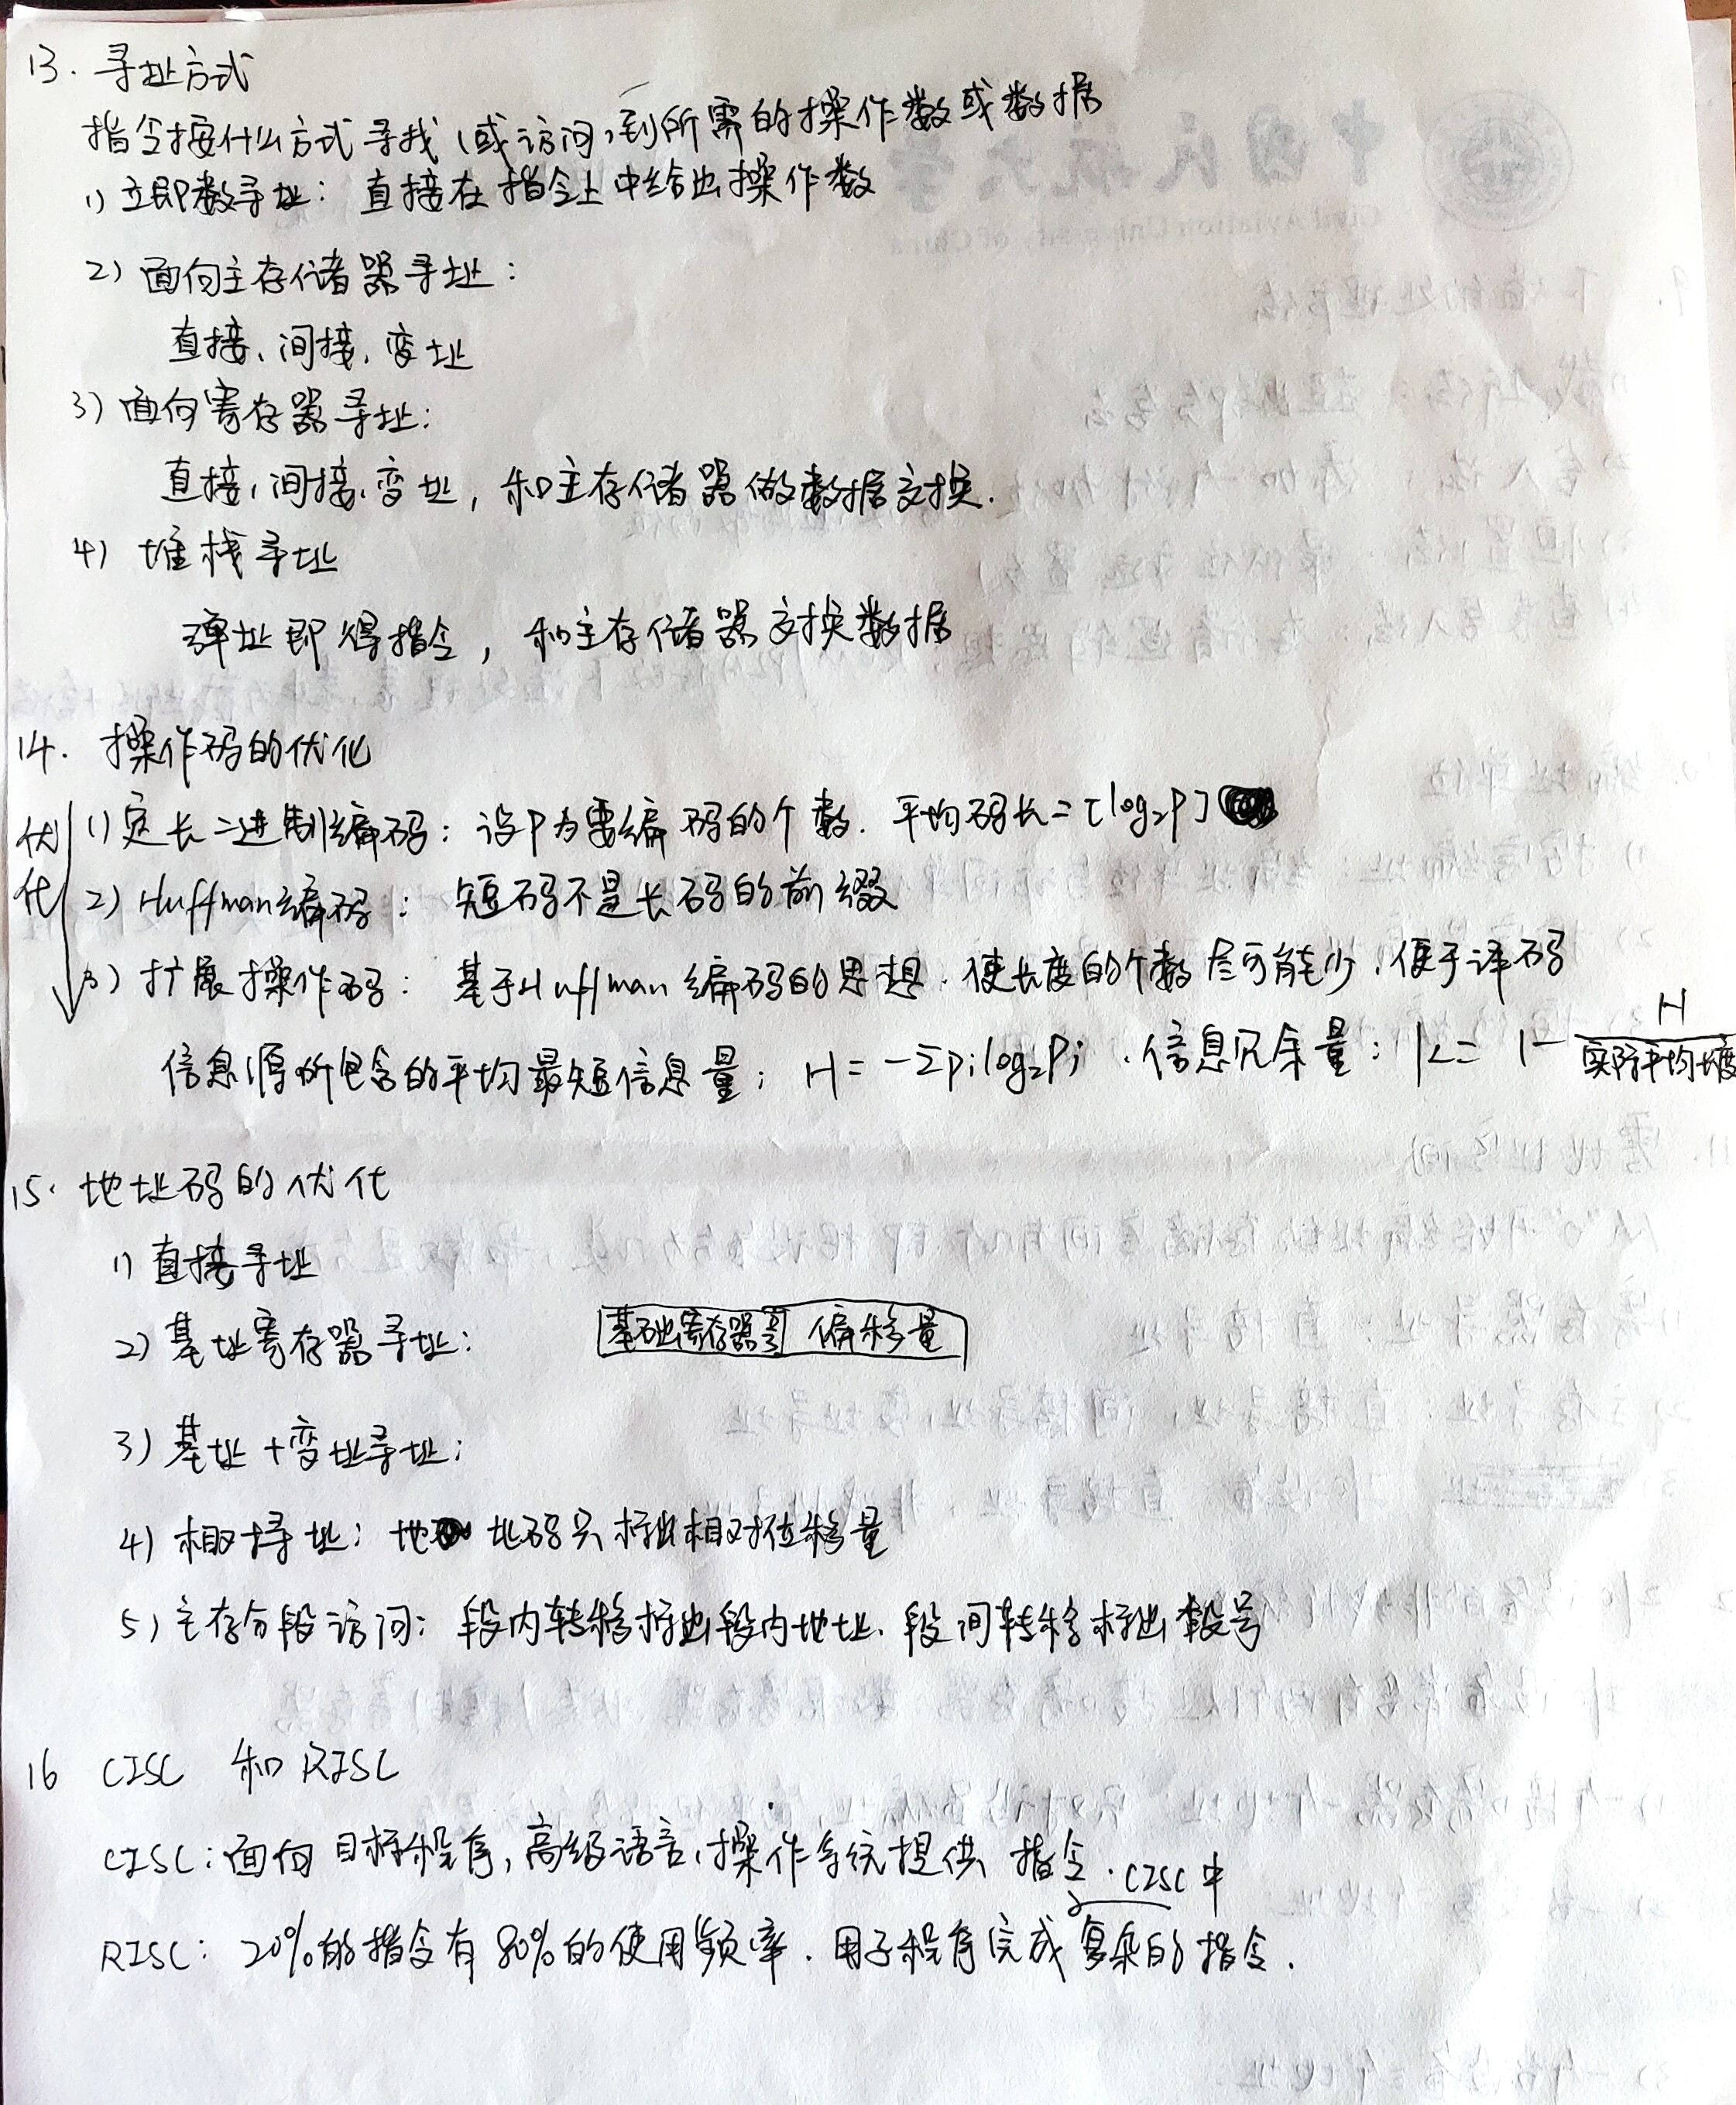 13. 寻址方式
指令按什么方式寻找(或访问)到所需的操作数或数据
1) 立即数寻址: 直接在指令上中给出操作数
2) 面向主存储器寻址:
直接、间接、变址
3) 面向寄存器寻址:
直接、间接、变址, 和主存储器做数据交换.
4) 堆栈寻址
弹址即得指令, 和主存储器交换数据
14. 操作码的优化
优化
1) 定长二进制编码: 设P为需编码的个数. 平均码长=[log₂P]
2) Huffman编码: 短码不是长码的前缀
3) 扩展操作码: 基于Huffman编码的思想. 使长度的个数尽可能少. 便于译码
信息源所包含的平均最短信息量; H=-Σpilog₂Pi . 信息冗余量: K=1-H/实际平均长度
15. 地址码的优化
1) 直接寻址
2) 基址寄存器寻址: 基础寄存器号 偏移量
3) 基址+变址寻址;
4) 相对寻址; 地址码只标出相对位移量
5) 主存分段访问: 段内转移标出段内地址、段间转移标出段号
16 CISC 和 RISC
CISC: 面向目标程序, 高级语言, 操作系统提供 指令. CISC中
RISC: 20%的指令有80%的使用频率. 用子程序完成复杂的指令.